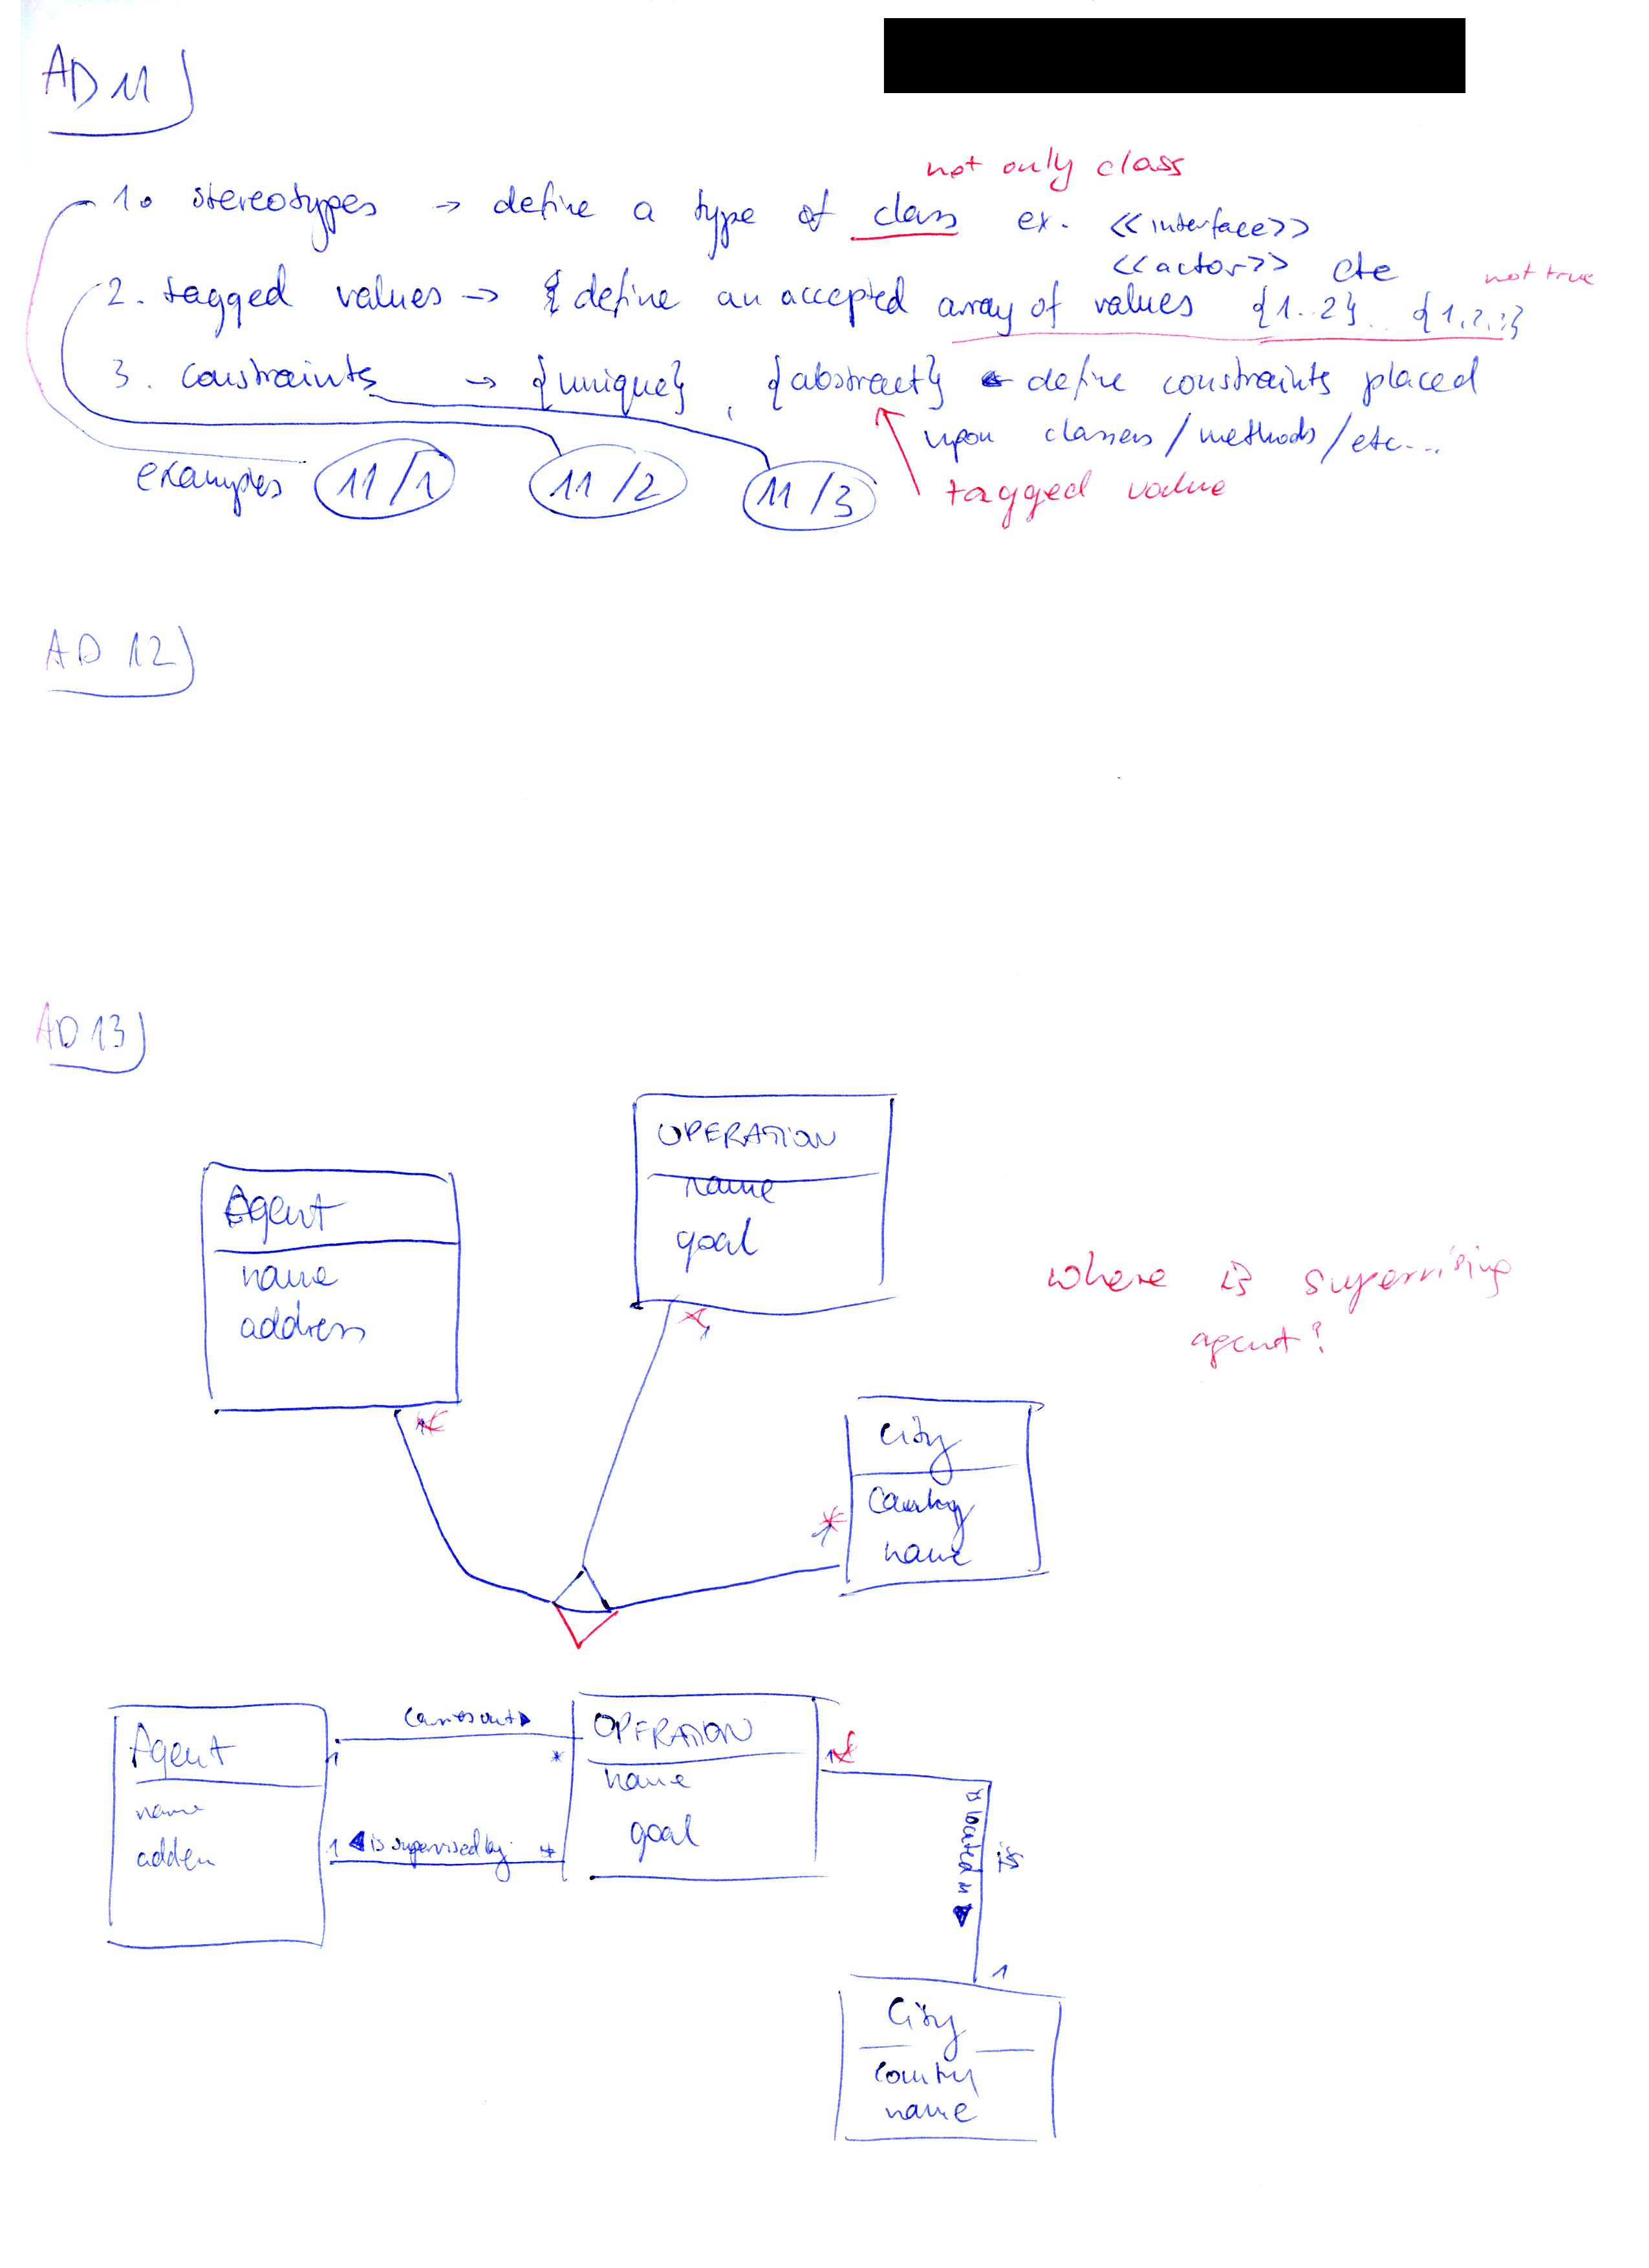 AD 11)
not only class
1. stereotypes → define a type of class ex. <<interface>>
<<actor>> etc
not true
2. tagged values → define an accepted array of values {1..2} .. {1,2,3}
3. constraints → {unique}, {abstract} define constraints placed
upon classes/methods/etc...
examples 11/1 11/2 11/3
tagged value
AD 12)
AD 13)
OPERATION
name
goal
Agent
name
address
where is supervising
agent?
*
*
City
Country
name
*
Agent
name
address
carries out ▶
1 *
1 ◀ is supervised by *
OPERATION
name
goal
1
is located in ▶
1
City
Country
name